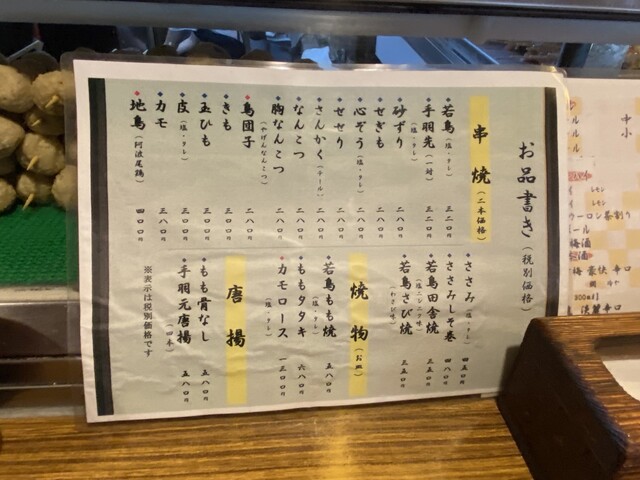 お品書き（税別価格）
串焼（二本価格）
若鳥（塩・タレ） 三二〇円
手羽先（一対）（塩・タレ） 三二〇円
砂ずり（塩・タレ） 二八〇円
せぎも 二八〇円
心ぞう（塩・タレ） 二八〇円
せせり 二八〇円
さんかく（テール） 二八〇円
なんこつ 二八〇円
胸なんこつ（やげんなんこつ） 二八〇円
鳥団子 二八〇円
きも 三〇〇円
玉ひも 三〇〇円
皮（塩・タレ） 三八〇円
カモ 三八〇円
地鳥（阿波尾鶏） 四〇〇円
ささみ（塩・タレ） 四五〇円
ささみしそ巻 四八〇円
若鳥田舎焼 三五〇円
若鳥さび焼（わさび味） 三五〇円
焼物（お皿）
若鳥もも焼（塩・タレ） 五八〇円
ももタタキ 六八〇円
カモロース（塩・タレ） 一三〇〇円
唐揚
もも骨なし 五八〇円
手羽元唐揚（四本） 五八〇円
※表示は税別価格です
中
小
レモン
レモン
ウーロン茶割り
梅酒
梅 豪快 辛口
300ml
淡麗辛口